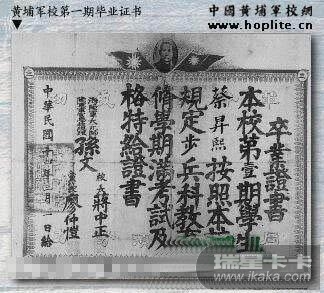 黄埔军校第一期毕业证书
中國黄埔軍校網
www.hoplite.cn
卒業證書
本校第壹期學生
蔡昇熙按照本校
規定步兵科教
修學期滿考試及
格特給證書
孫文
校長
蔣中正
廖仲愷
中華民國十
月
日給
瑞星卡卡
www.ikaka.com